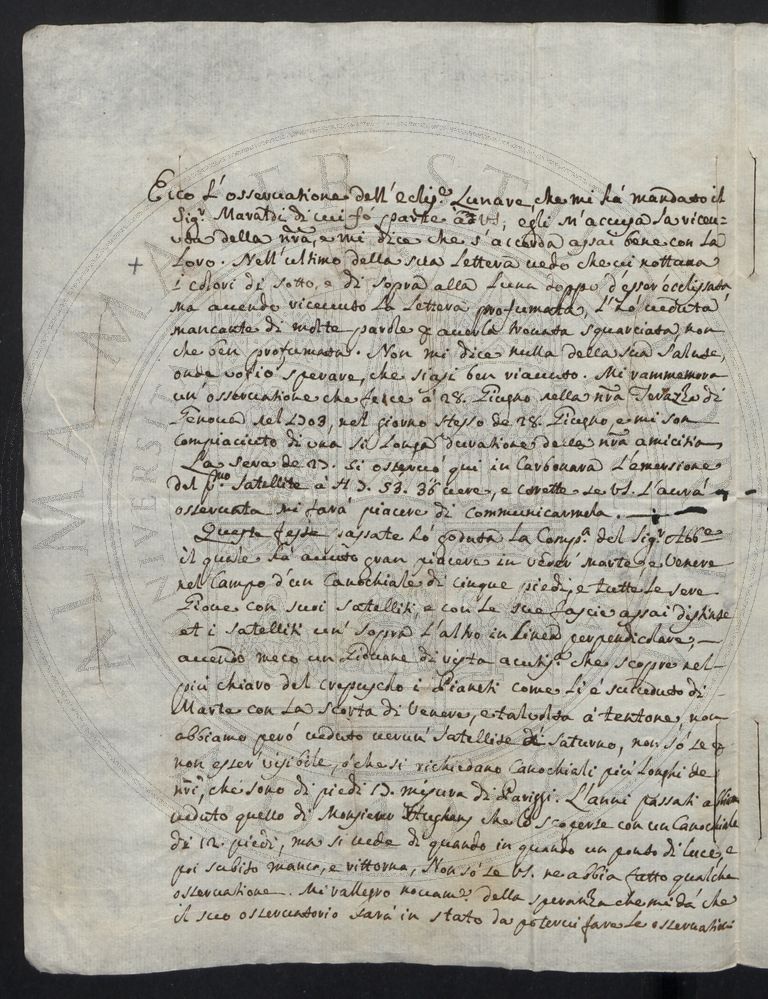 Ecco l'osservatione dell'eclis.e Lunare che mi hà mandato il
Sig.r Maraldi di cui fò parte à VS, egli m'accusa la ricevu=
ta della nrã, e mi dice che s'accorda assai bene con la
loro. Nell'ultimo della sua lettera vedo che vi nottava
i colori di sotto, e di sopra alla Luna doppo d'esser ecclissata
ma avendo ricevuto la lettera profumata, l'hò veduta
mancante di molte parole p averla trovata squarciata non
che ben profumata. Non mi dice nulla della sua salute,
onde voglio sperare, che siasi ben riavuto. Mi rammemora
un'osservatione che fece à 28. Giugno nella nrã Terazza di
Genova nel 1703, nel giorno stesso de 28. Giugno, e mi son
compiacciuto di una si longa duratione della nrã amicitia
La sera de 27. si osservò qui in Carbonara l'emersione
del p.mo Satellite à H 7. 53. 36 vere, e corette se VS. l'avrà
osservata mi farà piacere di communicarmela.
Queste feste passate hò goduta la Comp.a del Sig.r Abb.e
il quale hà avuto gran piacere in veder Marte, e Venere
nel Campo d'un Canochiale di cinque piedi, e tutte le sere
Giove con suoi satelliti, e con le sue fascie assai distinte
et i satelliti un sopra l'altro in linea perpendicolare,
avendo meco un Giovane di vista acutis.a che scopre nel
più chiaro del crepuscolo i Pianeti come li è succeduto di
Marte con la scorta di Venere, e talvolta à tentone, non
abbiamo però veduto verun satellite di Saturno, non sò se
non esser visibile, ò che si richiedano Canochiali più longhi de
nrĩ, che sono di piedi 17. misura di Pariggi. L'anni passati abbiam
veduto quello di Monsieur Hughens che lo scoperse con un Canochiale
di 12. piedi, ma si vede di quando in quando un ponto di luce, e
poi subito manca, e rittorna, Non sò se VS. ne abbia fatto qualche
osservatione. Mi rallegro novam.e della speranza che mi dà che
il suo osservatorio sarà in stato da potervi fare le osservationi